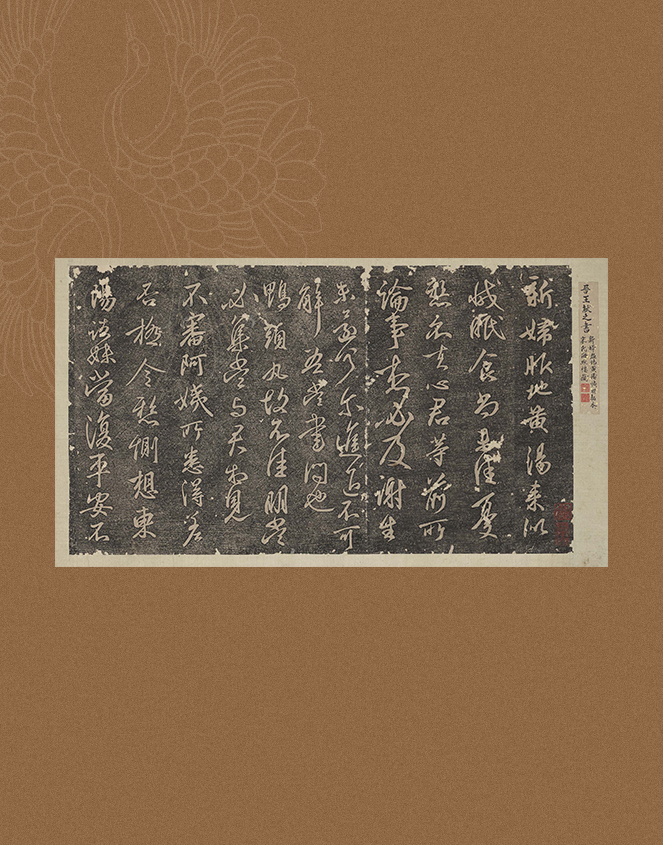 晉王獻之書
新婦服地黃湯來似
減眠食尚未佳憂
懸不去心君等前所
論事想必及謝生
未還何爾進退不可
解吾當書問也
鴨頭丸故不佳明當
必集當與君相見
不審阿姨所患得差
否極令懸惻想東
陽諸妹當復平安不